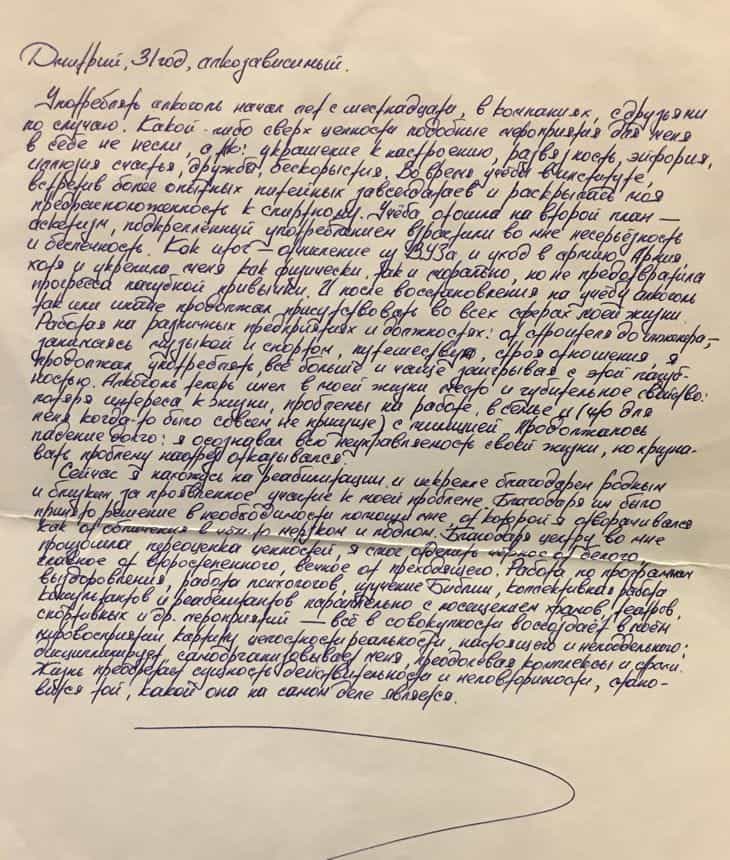 Дмитрий, 31 год, алкозависимый.
Употреблять алкоголь начал лет с шестнадцати, в компаниях, с друзьями
по случаю. Какой-либо сверх ценности подобные мероприятия для меня
в себе не несли, а то: украшение к настроению, развязность, эйфория,
иллюзия счастья, дружба, бескорыстия. Во время учёбы в институте,
встретив более опытных питейных завсегдатаев и раскрылась моя
предрасположенность к спиртному. Учёба отошла на второй план —
аскетизм, подкреплённый употреблением взрастили во мне несерьёзность
и беспечность. Как итог — отчисление из ВУЗа и уход в армию. Армия
хотя и укрепила меня как физически, так и морально, но не предотвратила
прогресса пагубной привычки. И после восстановления на учёбу алкоголь
так или иначе продолжал присутствовать во всех сферах моей жизни.
Работая на различных предприятиях и должностях: от строителя до инженера,
занимаясь музыкой и спортом, путешествуя, строя отношения, я
продолжал употреблять, всё больше и чаще заигрывая с этой пагуб-
ностью. Алкоголь теперь имел в моей жизни место и губительное свойство:
потеря интереса к жизни, проблемы на работе, в семье и (что для
меня когда-то было совсем не присуще) с милицией. Продолжалось
падение долго: я осознавал всю неуправляемость своей жизни, но призна-
вать проблему наотрез отказывался.
Сейчас я нахожусь на реабилитации и искренне благодарен родным
и близким за проявленное участие к моей проблеме. Благодаря им было
принято решение в необходимости помощи мне, от которой я отворачивался
как от обличения в чём-то мерзком и подлом. Благодаря центру во мне
произошла переоценка ценностей, я смог отделить чёрное от белого,
главное от второстепенного, вечное от преходящего. Работа по программам
выздоровления, работа психологов, изучение Библии, коллективная работа
консультантов и реабилитантов параллельно с посещением храмов, театров,
спортивных и др. мероприятий — всё в совокупности воссоздаёт в моём
мировосприятии картину целостности реальности, настоящего и неподдельного;
дисциплинирует, самоорганизовывает меня, преодолевая комплексы и страхи.
Жизнь приобретает сущность действительности и неповторимости, стано-
вится той, какой она на самом деле является.